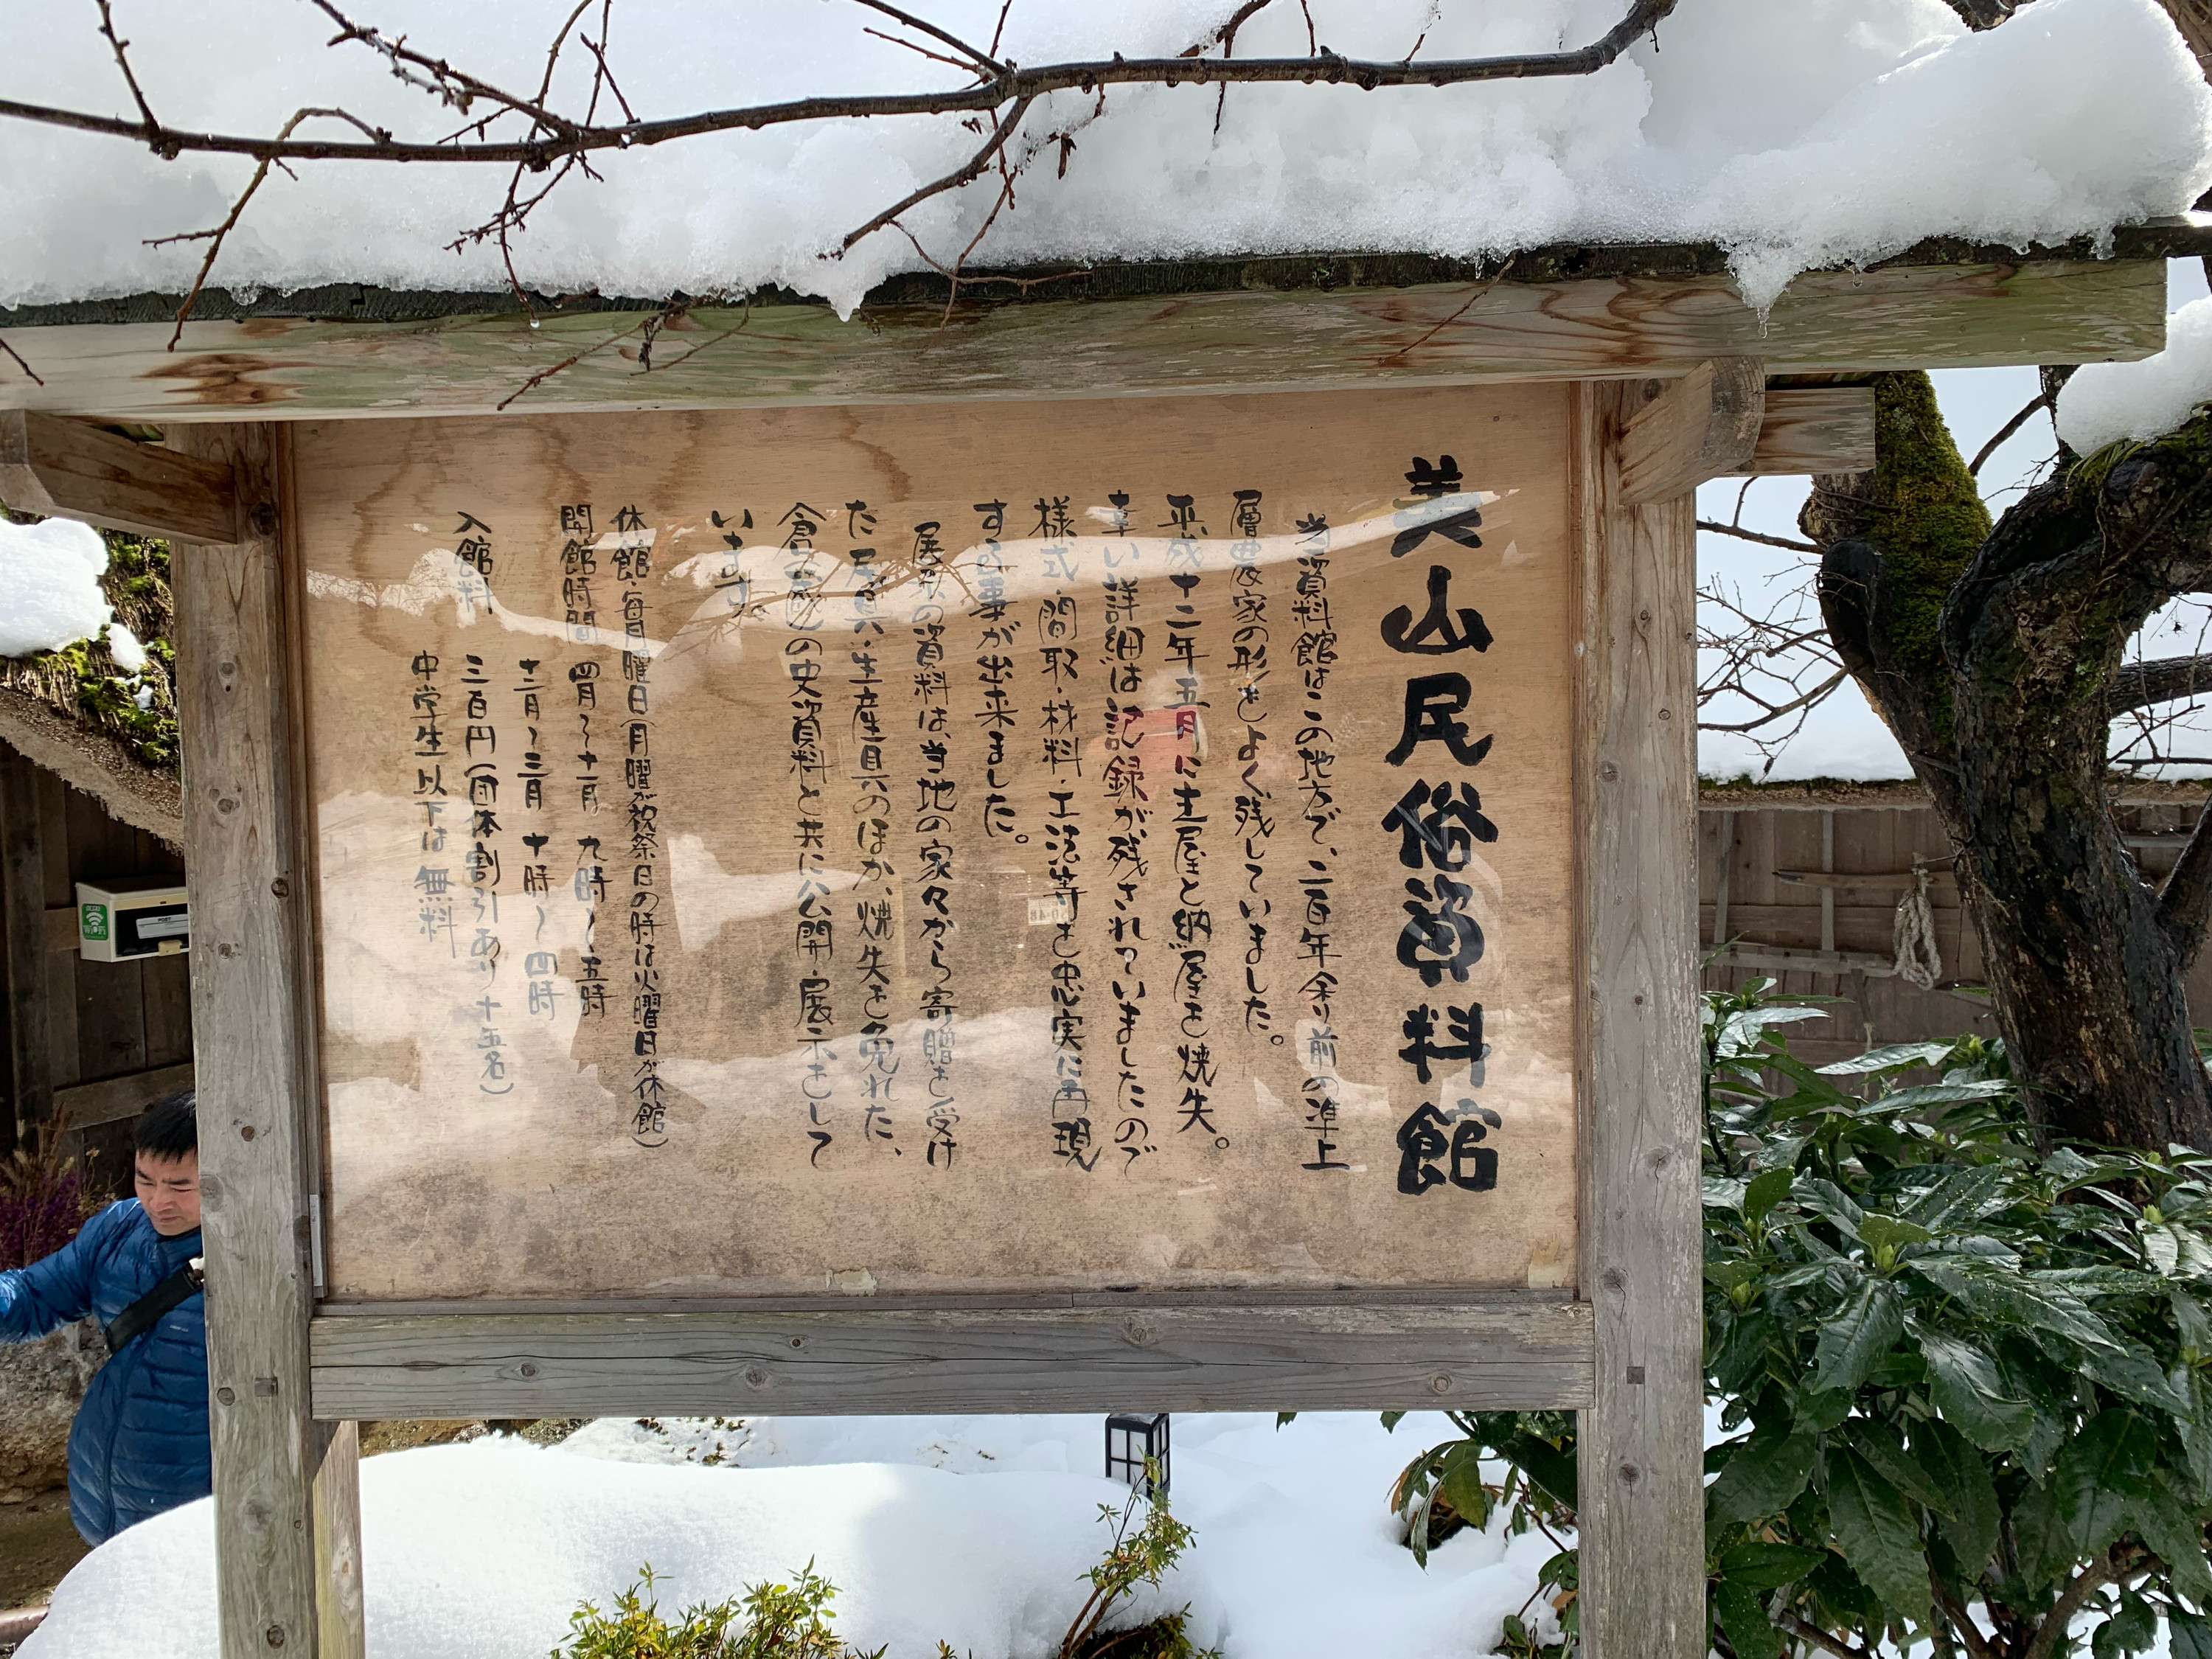 美山民俗資料館
当資料館はこの地方で、二百年余り前の準上
層農家の形をよく残していました。
平成十二年五月に主屋と納屋を焼失。
幸い詳細は記録が残されていましたので
様式・間取・材料・工法等を忠実に再現
する事が出来ました。
展示の資料は、当地の家々から寄贈を受け
た民具・生産具のほか、焼失を免れた、
倉(蔵)の史資料と共に公開・展示をして
います。
休館・毎月曜日(月曜が祝祭日の時は火曜日が休館)
開館時間 四月〜十一月 九時〜五時
十二月〜三月 十時〜四時
入館料 三百円(団体割引あり十五名)
中学生以下は無料
WiFi